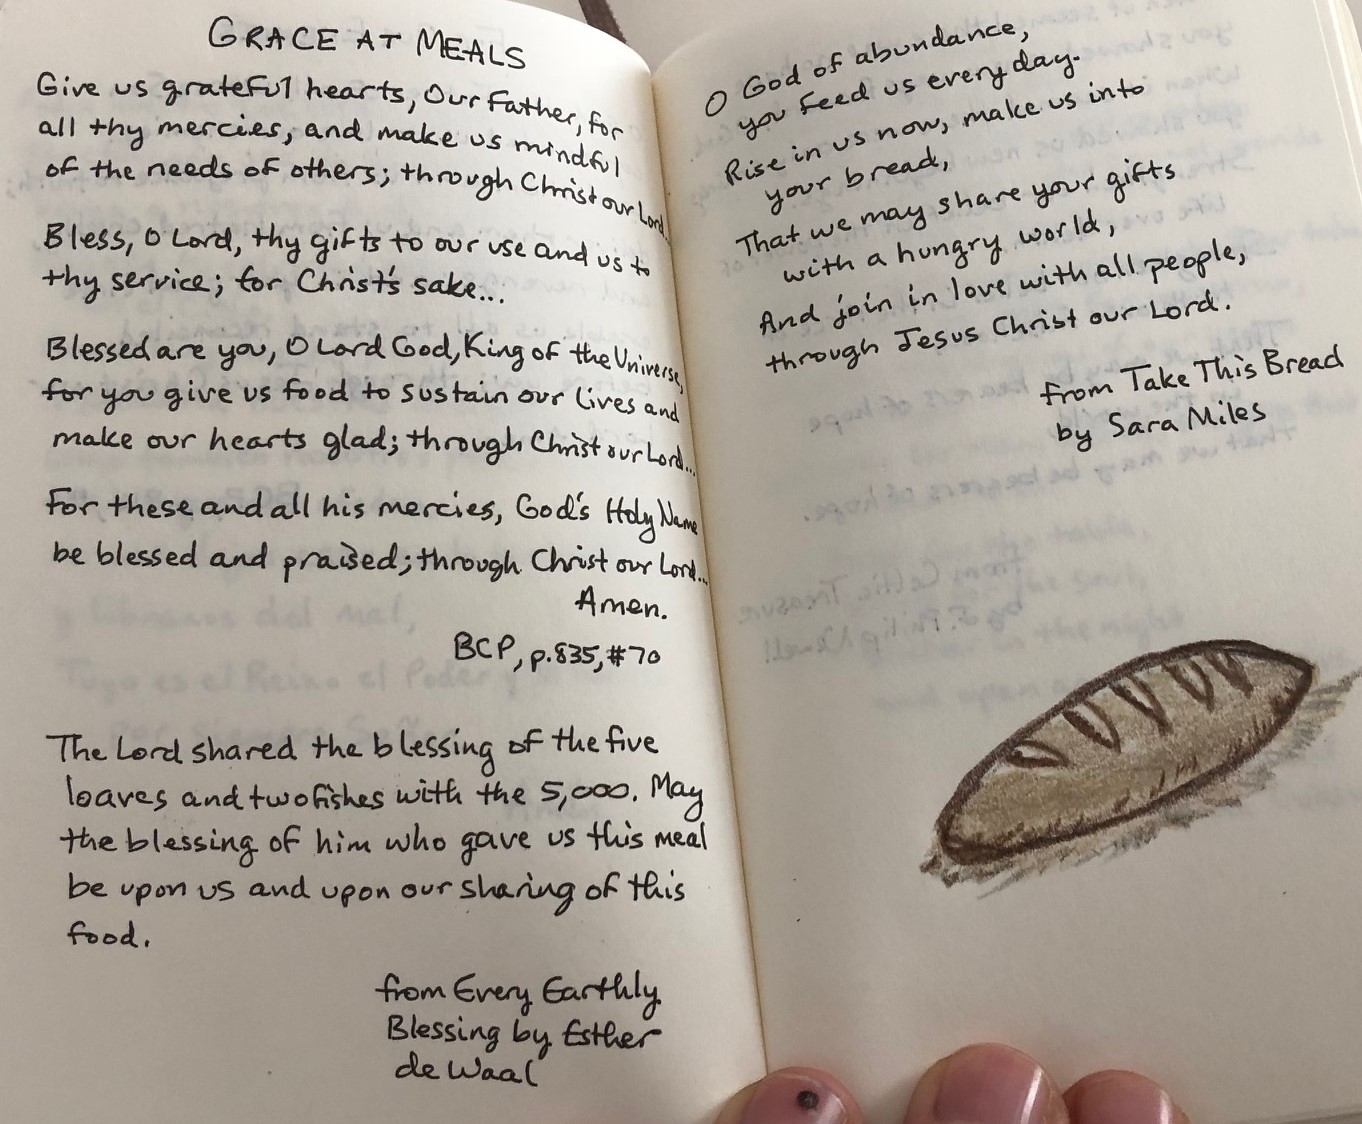 GRACE AT MEALS
Give us grateful hearts, Our Father, for
all thy mercies, and make us mindful
of the needs of others; through Christ our Lord.
Bless, O Lord, thy gifts to our use and us to
thy service; for Christ's sake...
Blessed are you, O Lord God, King of the Universe,
for you give us food to sustain our lives and
make our hearts glad; through Christ our Lord...
For these and all his mercies, God's Holy Name
be blessed and praised; through Christ our Lord...
Amen.
BCP, p.835, #70
The Lord shared the blessing of the five
loaves and two fishes with the 5,000. May
the blessing of him who gave us this meal
be upon us and upon our sharing of this
food.
from Every Earthly
Blessing by Esther
de Waal
O God of abundance,
you feed us every day.
Rise in us now, make us into
your bread,
That we may share your gifts
with a hungry world,
And join in love with all people,
through Jesus Christ our Lord.
from Take This Bread
by Sara Miles